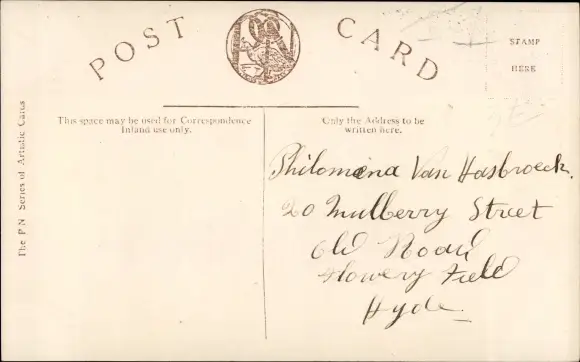 POST CARD
STAMP
HERE
This space may be used for Correspondence
Inland use only.
Only the Address to be
written here.
The P.N. Series of Artistic Cards
Philomena Van Hasbroeck.
20 Mulberry Street
Old Road
Flowery Field
Hyde